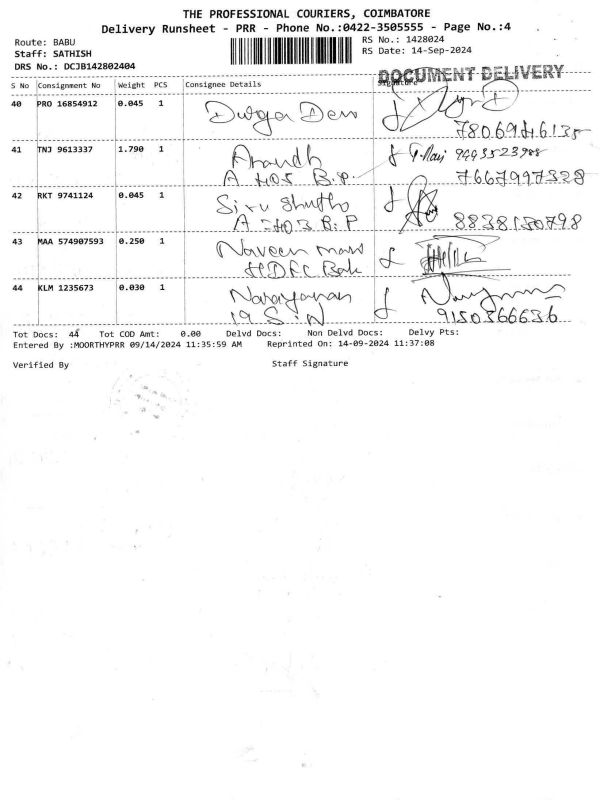 THE PROFESSIONAL COURIERS, COIMBATORE
Delivery Runsheet - PRR - Phone No.:0422-3505555 - Page No.:4
Route: BABU
Staff: SATHISH
DRS No.: DCJB142802404
RS No.: 1428024
RS Date: 14-Sep-2024
DOCUMENT DELIVERY
S No Consignment No Weight PCS Consignee Details Signature
40 PRO 16854912 0.045 1 Durga Devi
41 TNJ 9613337 1.790 1 Anandh
A 405 B.P. 7667997328
42 RKT 9741124 0.045 1
A 403 B.P 8838130798
43 MAA 574907593 0.250 1 Naveen
HDFC Bak
44 KLM 1235673 0.030 1 Narayanan
19 S.N 9150366636
Tot Docs: 44 Tot COD Amt: 0.00 Delvd Docs: Non Delvd Docs: Delvy Pts:
Entered By :MOORTHYPRR 09/14/2024 11:35:59 AM Reprinted On: 14-09-2024 11:37:08
Verified By Staff Signature